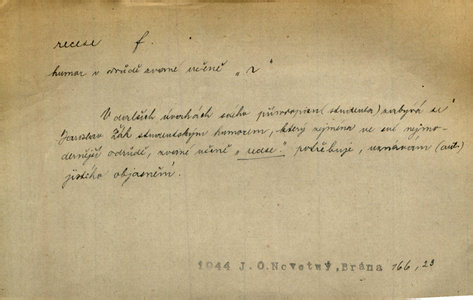 recese f.
humor v odrůdě zvané učeně „r"
V dalších úvahách svého přírodopisu (studenta) zabývá se
Jaroslav Žák studentským humorem, který zejména ve své nejmo-
dernější odrůdě, zvané učeně „recese" potřebuje, uznávám (aut.)
jistého objasnění.
1944 J.O.Novotný,Brána 166, 23